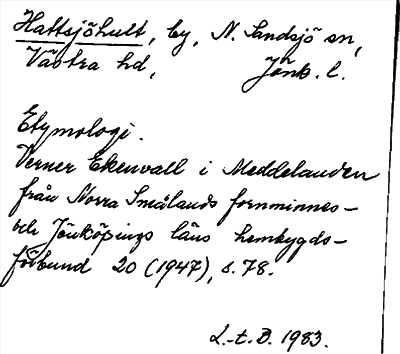 Hattsjöhult, by, N. Sandsjö sn,
Västra hd, Jönk. l.
Etymologi.
Verner Ekenvall i Meddelanden
från Norra Smålands fornminnes-
och Jönköpings läns hembygds-
förbund 20 (1947), s. 78.
L.-t. B. 1983.